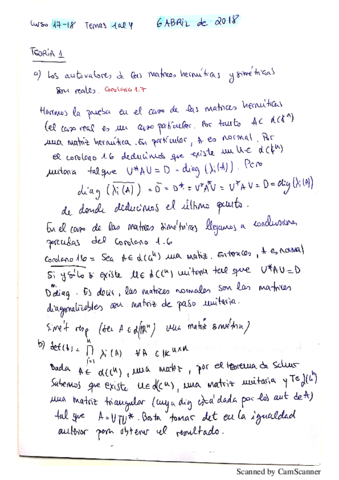 Curso 17-18 Temas 1 al 4 6 ABRIL de 2018
TEORÍA 1
a) Los autovalores de las matrices hermíticas y simétricas
son reales. Corolario 1.7
Haremos la prueba en el caso de las matrices hermíticas
(el caso real es un caso particular. Por tanto A ∈ L(ℂⁿ)
una matriz hermítica. En particular, A es normal. Por
el corolario 1.6 deducimos que existe un U ∈ L(ℂⁿ)
unitaria tal que U*AU = D = diag (λi(A)). Pero
diag (λi(A)) = D̄ = D* = U*A*U = U*AU = D = diag (λi(A))
de donde deducimos el último punto.
En el caso de las matrices simétricas llegamos a conclusiones
del Corolario 1.6
Corolario 1.6 = Sea A ∈ L(ℂⁿ) una matriz. Entonces, A es normal
si y sólo si existe U ∈ L(ℂⁿ) unitaria tal que U*AU = D
D diag. Es decir, las matrices normales son las matrices
diagonalizables con matriz de paso unitaria.
Simét resp (Sea A ∈ una matriz simétrica)
b) det(A) = ∏ λi(A) ∀A ∈ K^{n×n}
Dada A ∈ L(ℂⁿ), una matriz, por el teorema de Schur
Sabemos que existe U ∈ L(ℂⁿ), una matriz unitaria y T ∈ L(ℂⁿ)
una matriz triangular (cuya diag está dada por los aut de A)
tal que A = UTU*. Basta tomar det en la igualdad
anterior para obtener el resultado.
Scanned by CamScanner